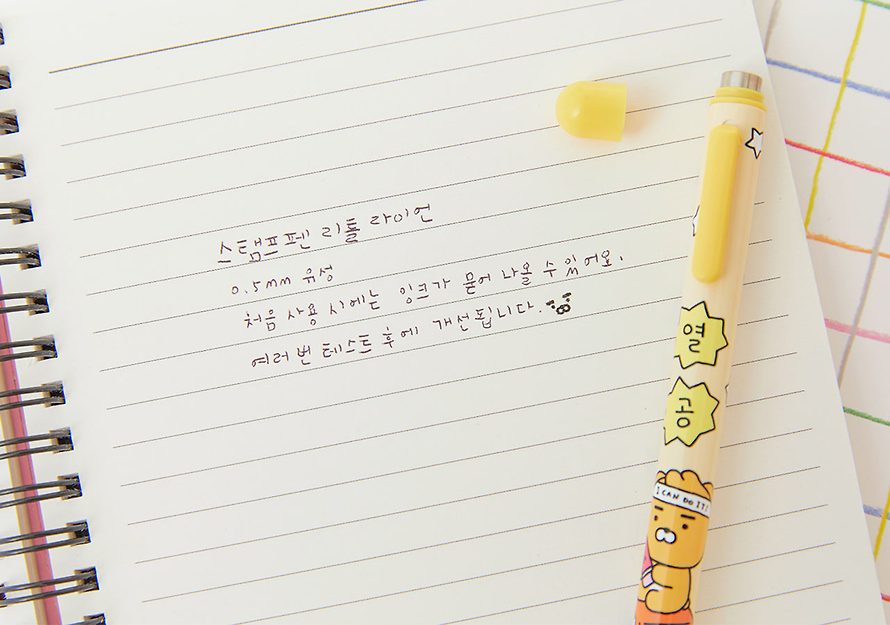 스탬프펜 리틀 라이언
0.5mm 유성
처음 사용 시에는 잉크가 묻어 나올 수 있어요.
여러번 테스트 후에 개선됩니다.
열
공
I CAN DO IT!